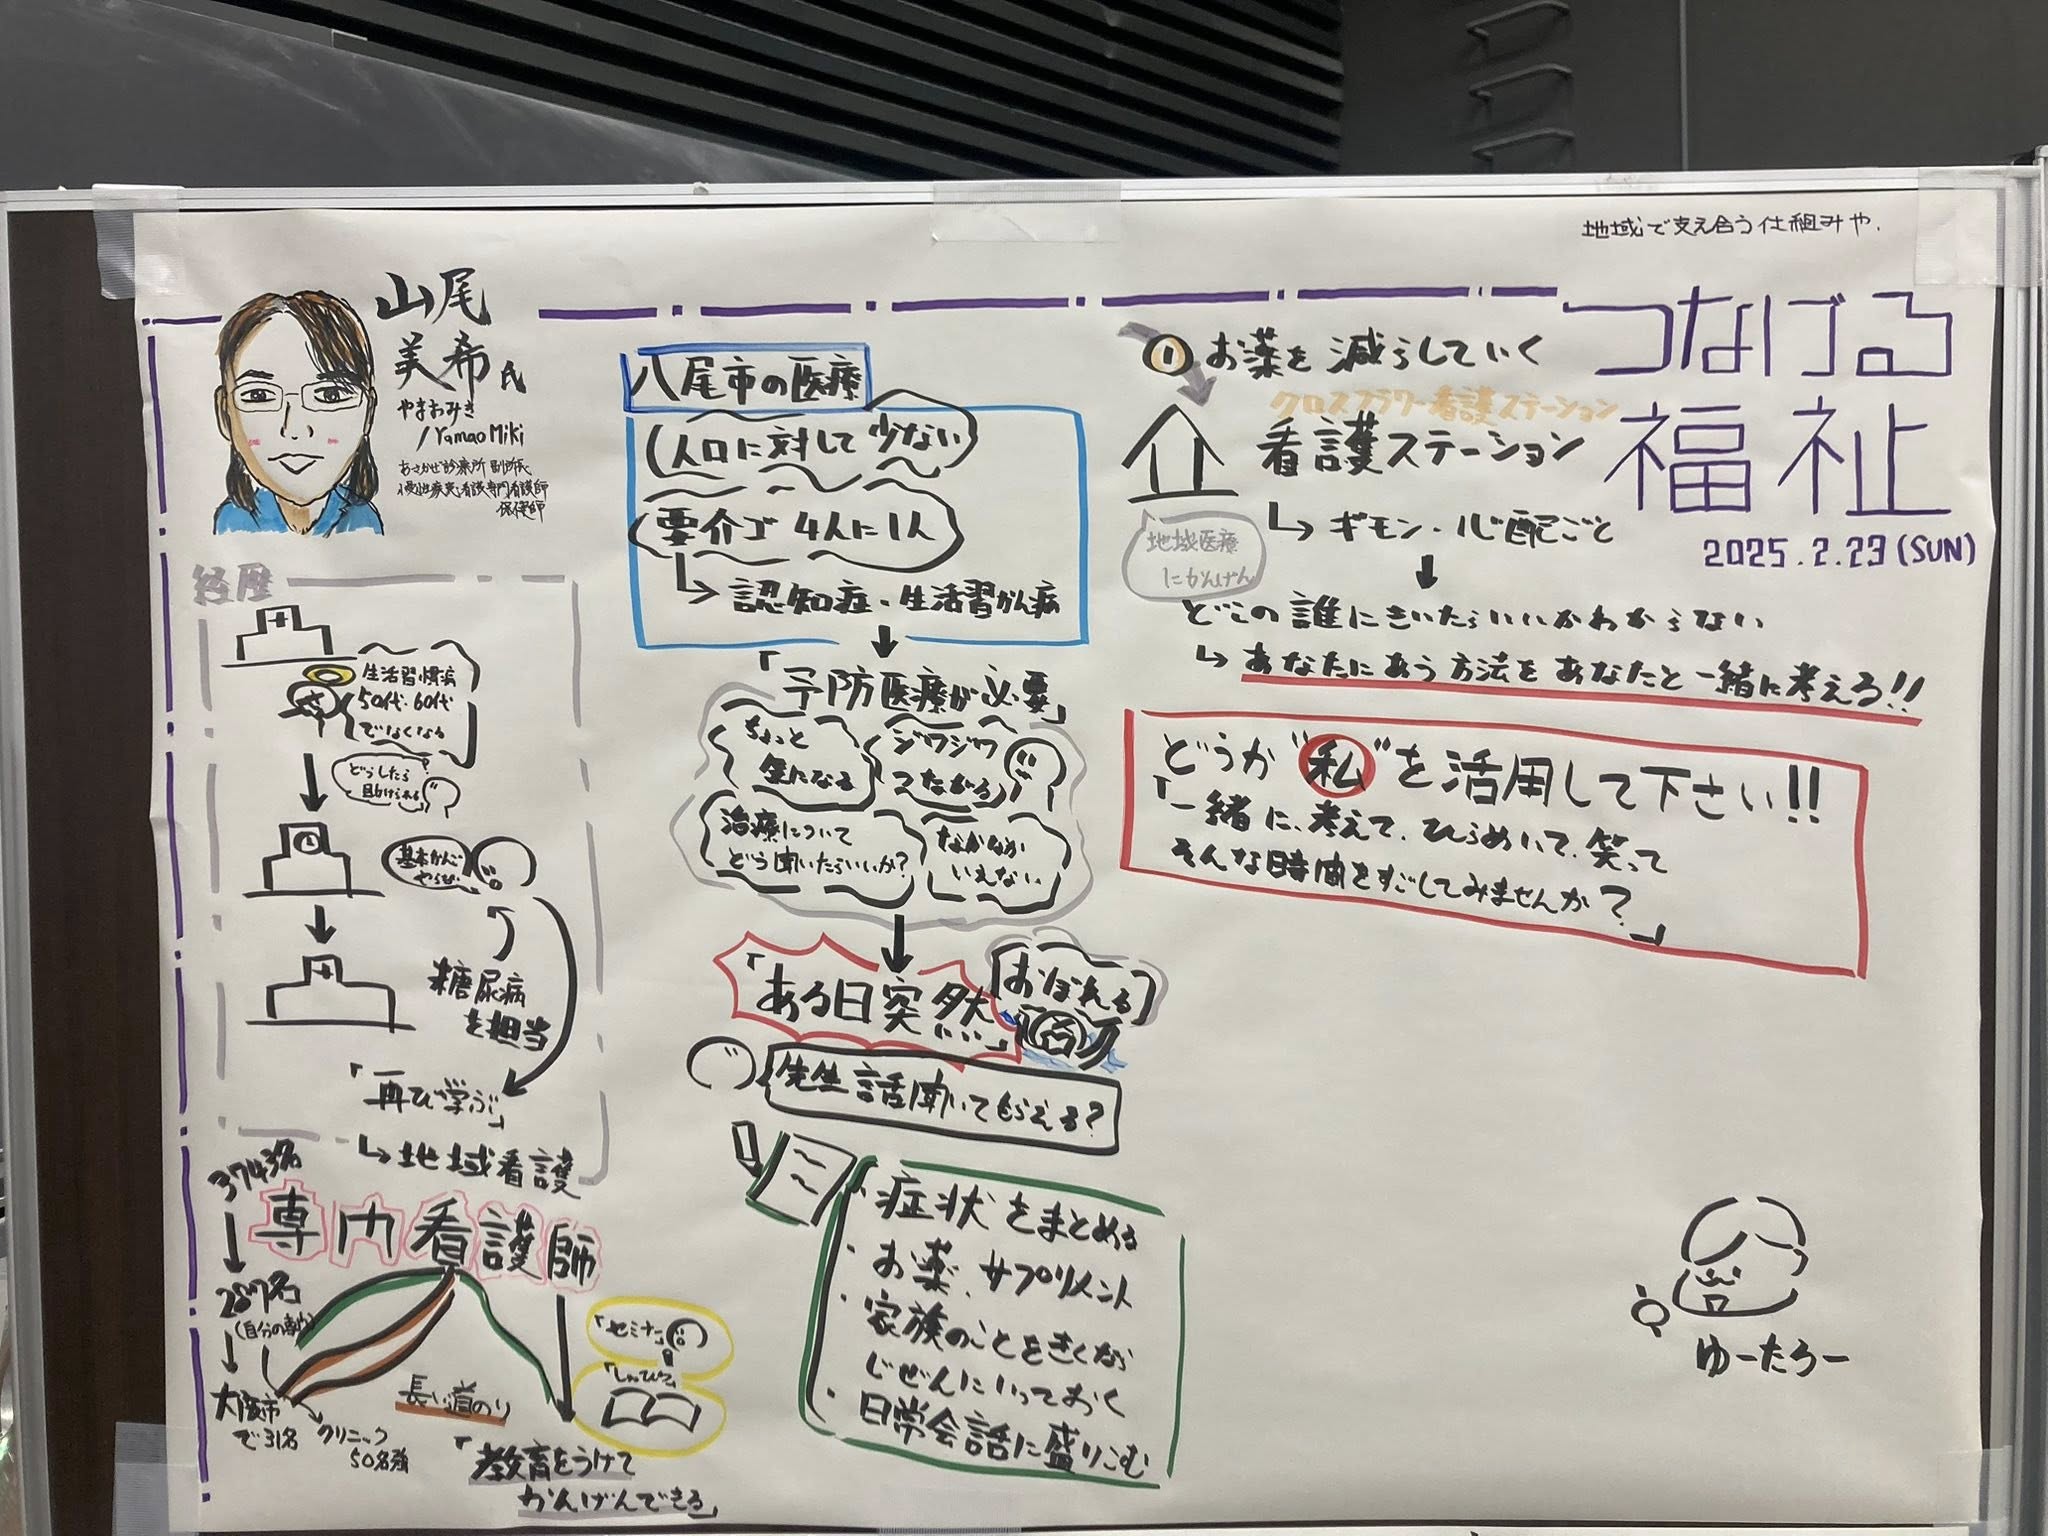 地域で支え合う仕組みや.
つなげる
福祉
2025.2.23(SUN)
山尾
美希氏
やまおみき
/Yamao Miki
あさかぜ診療所 副所長
慢性疾患看護専門看護師
保健師
経歴
生活習慣病
50代・60代
でなくなる
どうしたら
助けられる?
基本かんご
やらな..
糖尿病
を担当
「再び学ぶ」
↳地域看護
3743名
専門看護師
287名
(自分の専門)
大阪市
で31名
クリニック
50名強
長い道のり
「セミナー」
「しっぴつ」
「教育をうけて
かんげんできる」
八尾市の医療
人口に対して少ない
要介ゴ 4人に1人
↳認知症・生活習かん病
「予防医療が必要」
ちょっと
気になる
ジワジワ
つながる
治療について
どう聞いたらいいか?
なかなか
いえない
「ある日突然…」
おぼれる
先生話聞いてもらえる?
・症状をまとめる
・お薬、サプリメント
・家族のことをきくなら
じぜんにいっておく
・日常会話に盛りこむ
① お薬を減らしていく
クロスフラワー看護ステーション
看護ステーション
地域医療
にかんげん
↳ギモン・心配ごと
どこの誰にきいたらいいかわからない
↳あなたにあう方法をあなたと一緒に考える!!
どうか"私"を活用して下さい!!
「一緒に、考えて、ひらめいて、笑って
そんな時間をすごしてみませんか?」
ゆーたろー